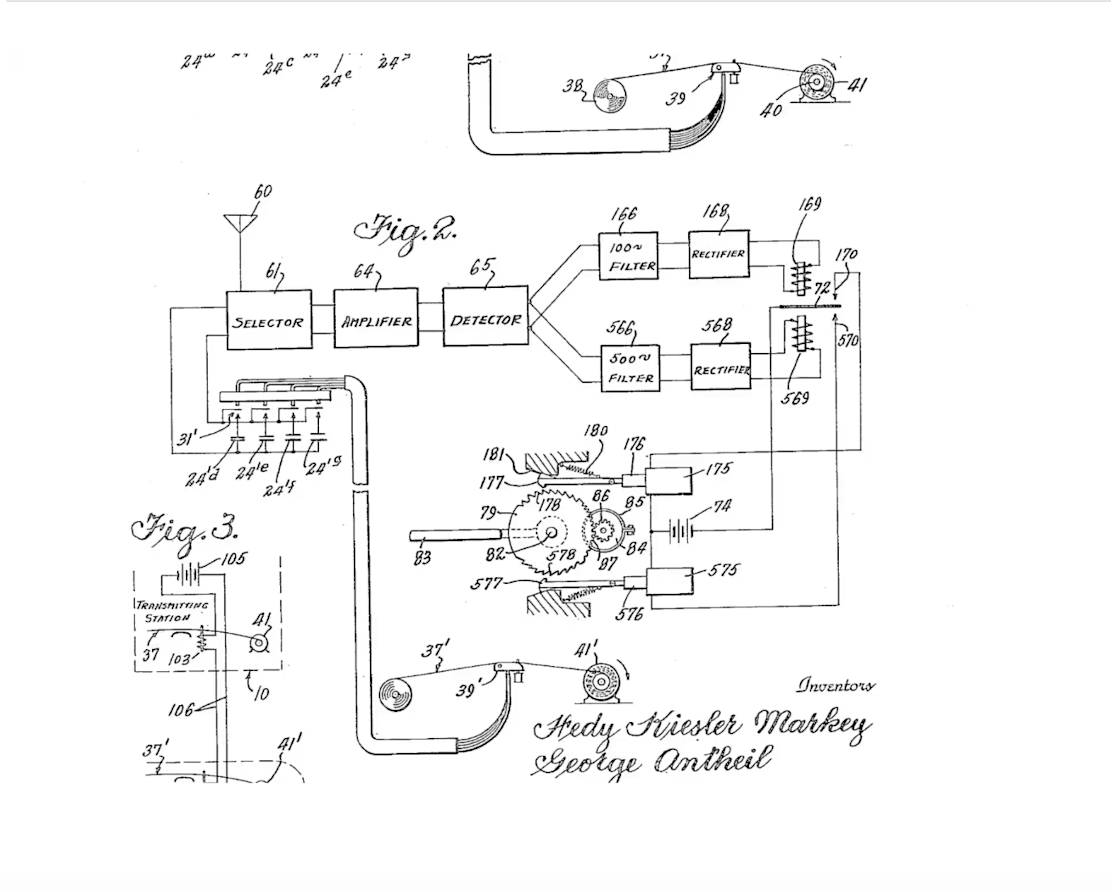 24c
24e
38
39
40
41
60
Fig. 2.
166
168
169
170
61
64
65
100~
FILTER
RECTIFIER
72
SELECTOR
AMPLIFIER
DETECTOR
566
568
570
500~
FILTER
RECTIFIER
569
31'
24'd
24'e
24'f
24'g
180
181
176
175
177
178
79
86
85
74
Fig. 3.
83
82
578
87
84
577
575
576
105
TRANSMITTING
STATION
41
37
103
10
106
37'
39'
41'
Inventors
Hedy Kiesler Markey
George Antheil
37'
41'